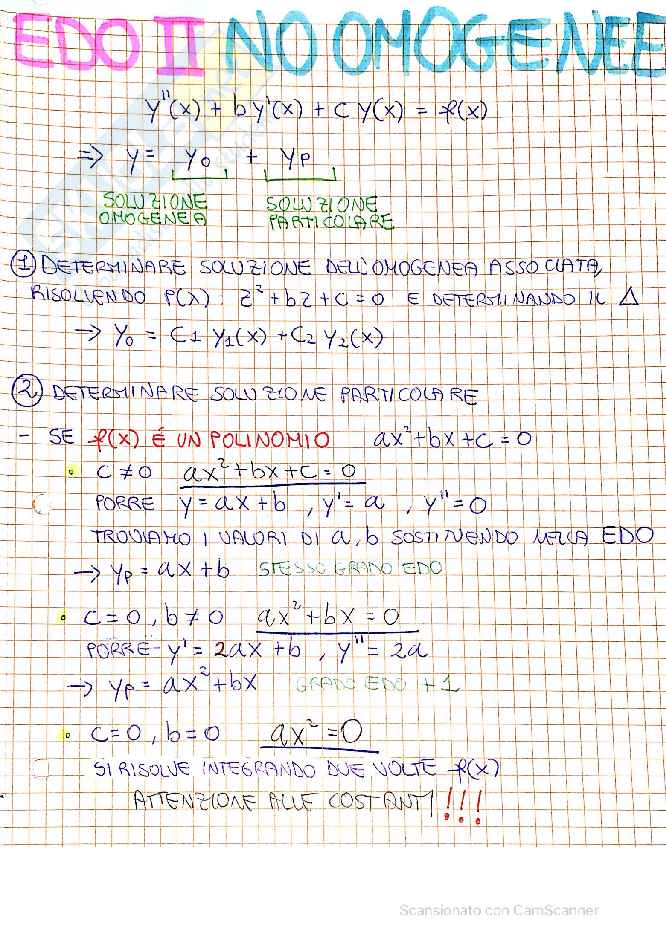 EDO II NO OMOGENEE
y''(x) + b y'(x) + c y(x) = f(x)
⇒ y = y₀ + yₚ
SOLUZIONE OMOGENEA SOLUZIONE PARTICOLARE
① DETERMINARE SOLUZIONE DELL'OMOGENEA ASSOCIATA,
RISOLVENDO P(λ): z² + bz + c = 0 E DETERMINANDO IL Δ
→ y₀ = C1 y₁(x) + C₂ y₂(x)
② DETERMINARE SOLUZIONE PARTICOLARE
- SE f(x) É UN POLINOMIO ax²+bx+c = 0
• c ≠ 0 ax²+bx+c = 0
PORRE y = ax + b , y' = a , y'' = 0
TROVIAMO I VALORI DI a, b SOSTITUENDO NELLA EDO
→ yₚ = ax + b STESSO GRADO EDO
• c = 0 , b ≠ 0 ax² + bx = 0
PORRE - y' = 2ax + b , y'' = 2a
→ yₚ = ax² + bx GRADO EDO +1
• c = 0 , b = 0 ax² = 0
SI RISOLVE INTEGRANDO DUE VOLTE f(x)
ATTENZIONE ALLE COSTANTI!!!
Scansionato con CamScanner